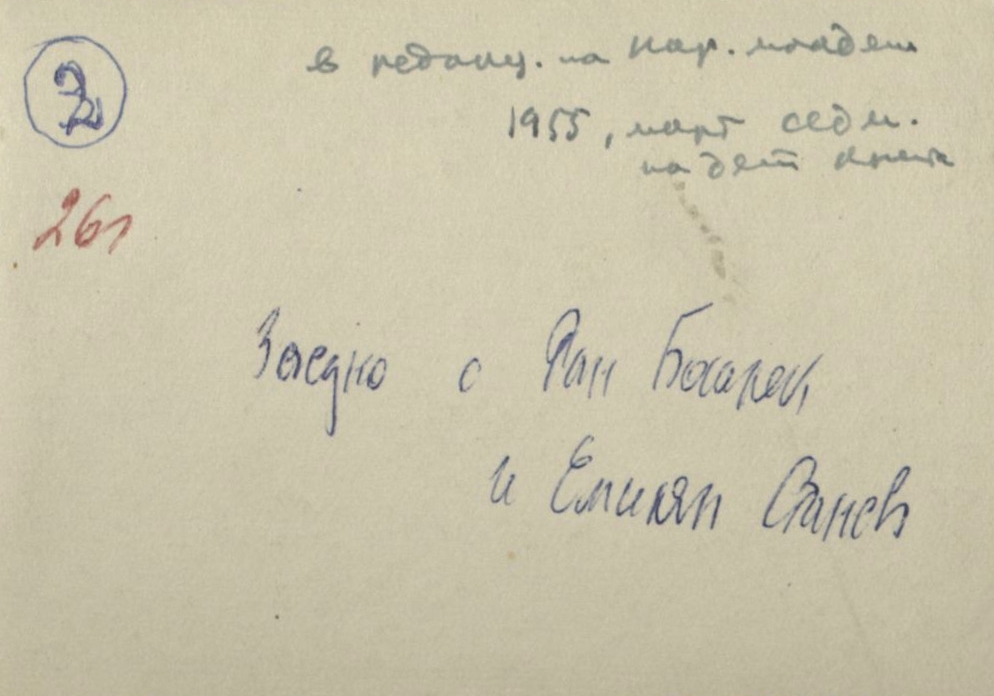 2
в редакц. на Нар. младеж
1955, март седм.
на дет книга
261
Заедно с Ран Босилек
и Емилян Станев